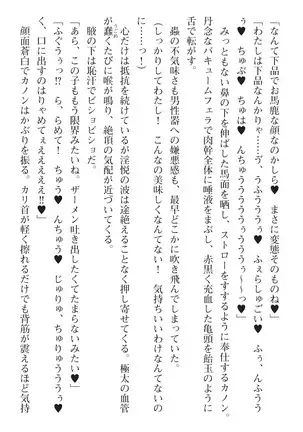 「なんて下品でお馬鹿な顔なのかしら♥　まさに変態そのものね♥」
「わたしは下品なんかりゃ……、うふううう♥　ふぇらしゅごい♥　ふぅ、んふうう
ぅ♥　ちゅぶ♥　ちゅは♥　ちゅううう♥　ちゅううぅぅ～～っ♥」
みっともない鼻の下を伸ばした馬面を晒し、ストローをすするように奉仕するカノン。
丹念なバキュームフェラで肉幹全体に唾液をまぶし、赤黒く充血した亀頭を飴玉のように
舌で転がす。
蟲の不気味さも男性器への嫌悪感も、最早どこかに吹き飛んでしまっていた。
（しっかりしてわたし！　こんなの美味しくなんてない！　気持ちいいわけなんてないの
に……っ！）
心だけは抵抗を続けているが淫悦の波は途絶えることなく押し寄せてくる。極太の血管
が蠢くたびに喉が鳴り、絶頂の気配が近づいてくる。
腋の下は恥汗でビショビショだ。
「あら、この子ももう限界みたいね。ザーメン吐き出したくてたまらないみたい♥」
「ふぐうぅっ!?　ら、らめて！　ちゅう♥　んちゅう♥　じゅりゅ、ちゅりゅうううぅ♥
く、口に出すのはりゃめてぇぇぇぇぇ!!　♥」
顔面蒼白でカノンはかぶりを振る。カリ首が軽く擦れるだけでも背筋が震えるほど気持